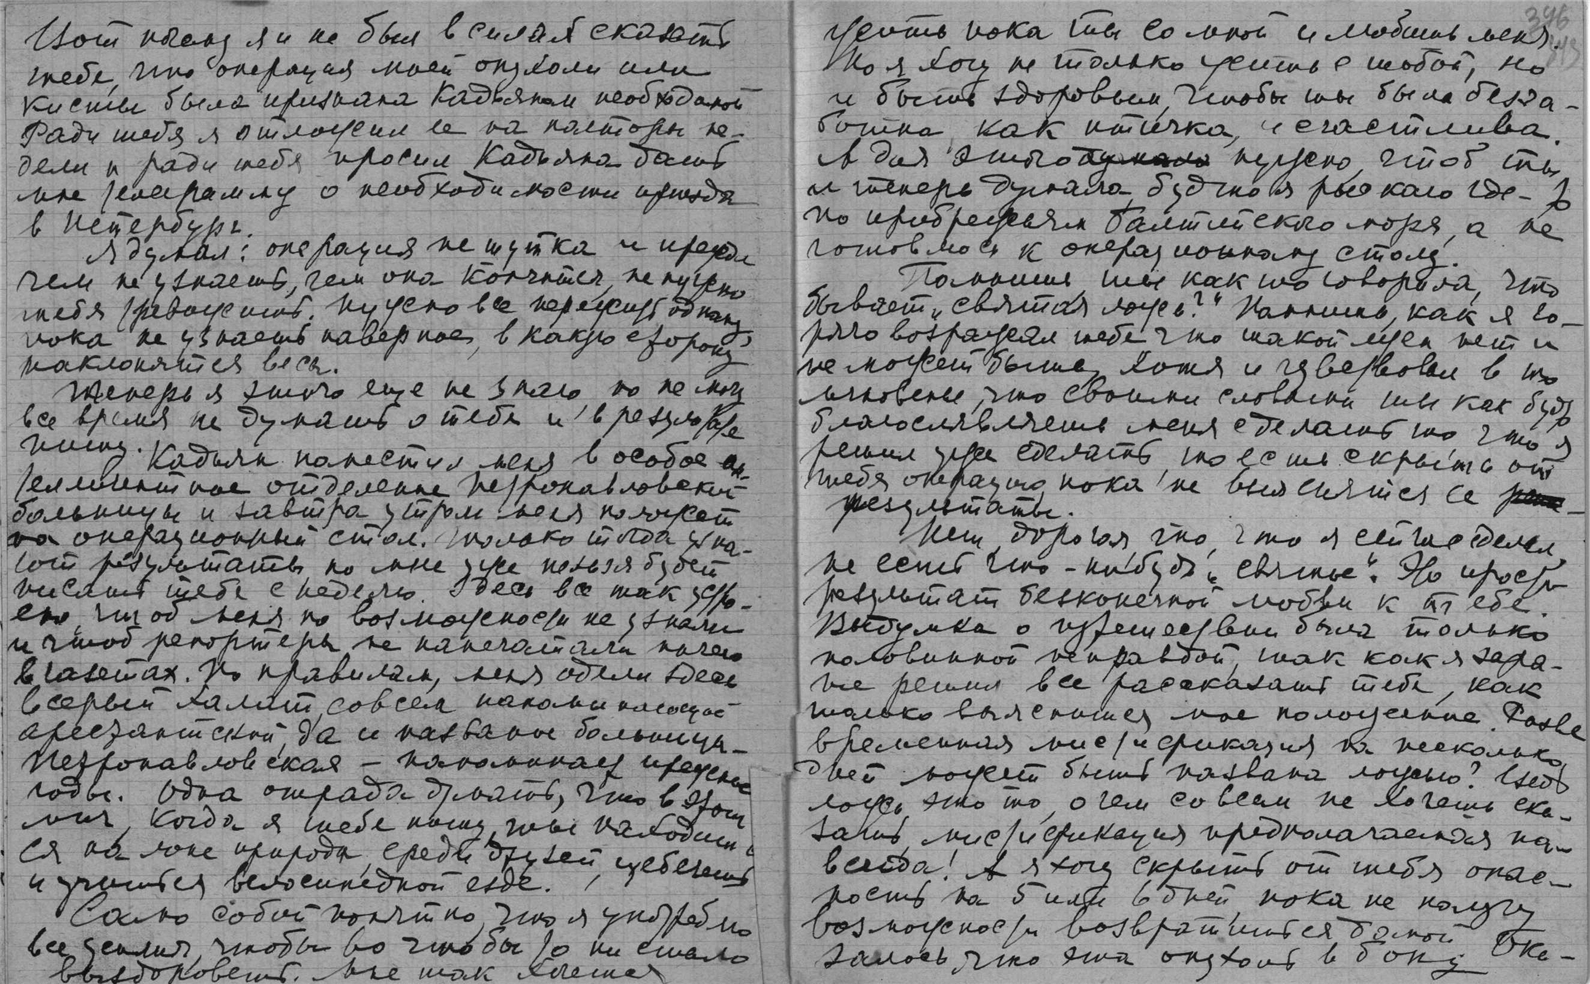 Вот почему я и не был в силах сказать
тебе, что операция моей опухоли или
кисты была признана Кадьяном необходимой
Ради тебя я отложил ее на полторы не-
дели и ради тебя просил Кадьяна дать
мне телеграмму о необходимости приезда
в Петербург.
Я думал: операция не шутка и прежде
чем не узнаешь, чем она кончится, не нужно
тебя тревожить. Нужно все пережить одному,
пока не узнаешь наверное, в какую сторону
наклонятся весы.
Теперь я этого еще не знаю, но не могу
все время не думать о тебе и в результате
пишу.
Кадьян поместил меня в особое
отделение Петропавловской
больницы и завтра утром меня положат
на операционный стол. Только тогда узна-
ют результаты, но мне уже нельзя будет
писать тебе с неделю. Здесь все так устро-
ено, чтоб меня по возможности не узнали
и чтоб репортеры не напечатали ничего
в газетах. По правилам, меня одели здесь
в серый халат, совсем напоминающий
арестантский, да и название больницы -
Петропавловская - напоминает прежние
годы. Одна отрада думать, что в этот
миг, когда я тебе пишу, ты находишь-
ся на лоне природы, среди друзей, щебечешь
и учишься велосипедной езде.
Само собой понятно, что я употреблю
все усилия, чтобы во что бы то ни стало
выздороветь. Мне так хочется
396
жить пока ты со мной и любишь меня.
Но я хочу не только жить с тобой, но
и быть здоровым, чтобы ты была безза-
ботна, как птичка, и счастлива.
А для этого нужно, чтоб ты
и теперь думала, будто я рыскаю где-то
по прибрежьям Балтийского моря, а не
готовлюсь к операционному столу.
Помнишь, ты как-то говорила, что
бывает „святая ложь?" Помнишь, как я го-
рячо возражал тебе что такой лжи нет и
не может быть, хотя и чувствовал в то
мгновенье, что своими словами ты как будто
благославляешь меня сделать то что я
решил уже сделать, то есть скрыть от
тебя операцию, пока не выяснятся ее
результаты.
Нет, дорогая, то, что я сейчас делал,
не есть что-нибудь „святое". Это просто
результат безконечной любви к тебе.
Выдумка о путешествии была только
половинной неправдой, так как я зара-
нее решил все рассказать тебе, как
только выяснится мое положение. Разве
временная мистификация на несколько
дней может быть названа ложью? Ведь
ложь это то, о чем совсем не хочешь ска-
зать, мистификация предполагаемая на-
всегда! А я хочу скрыть от тебя опас-
ность на 5 или 6 дней, пока не получу
возможности возвратиться домой. Ока-
залось, что эта опухоль в боку